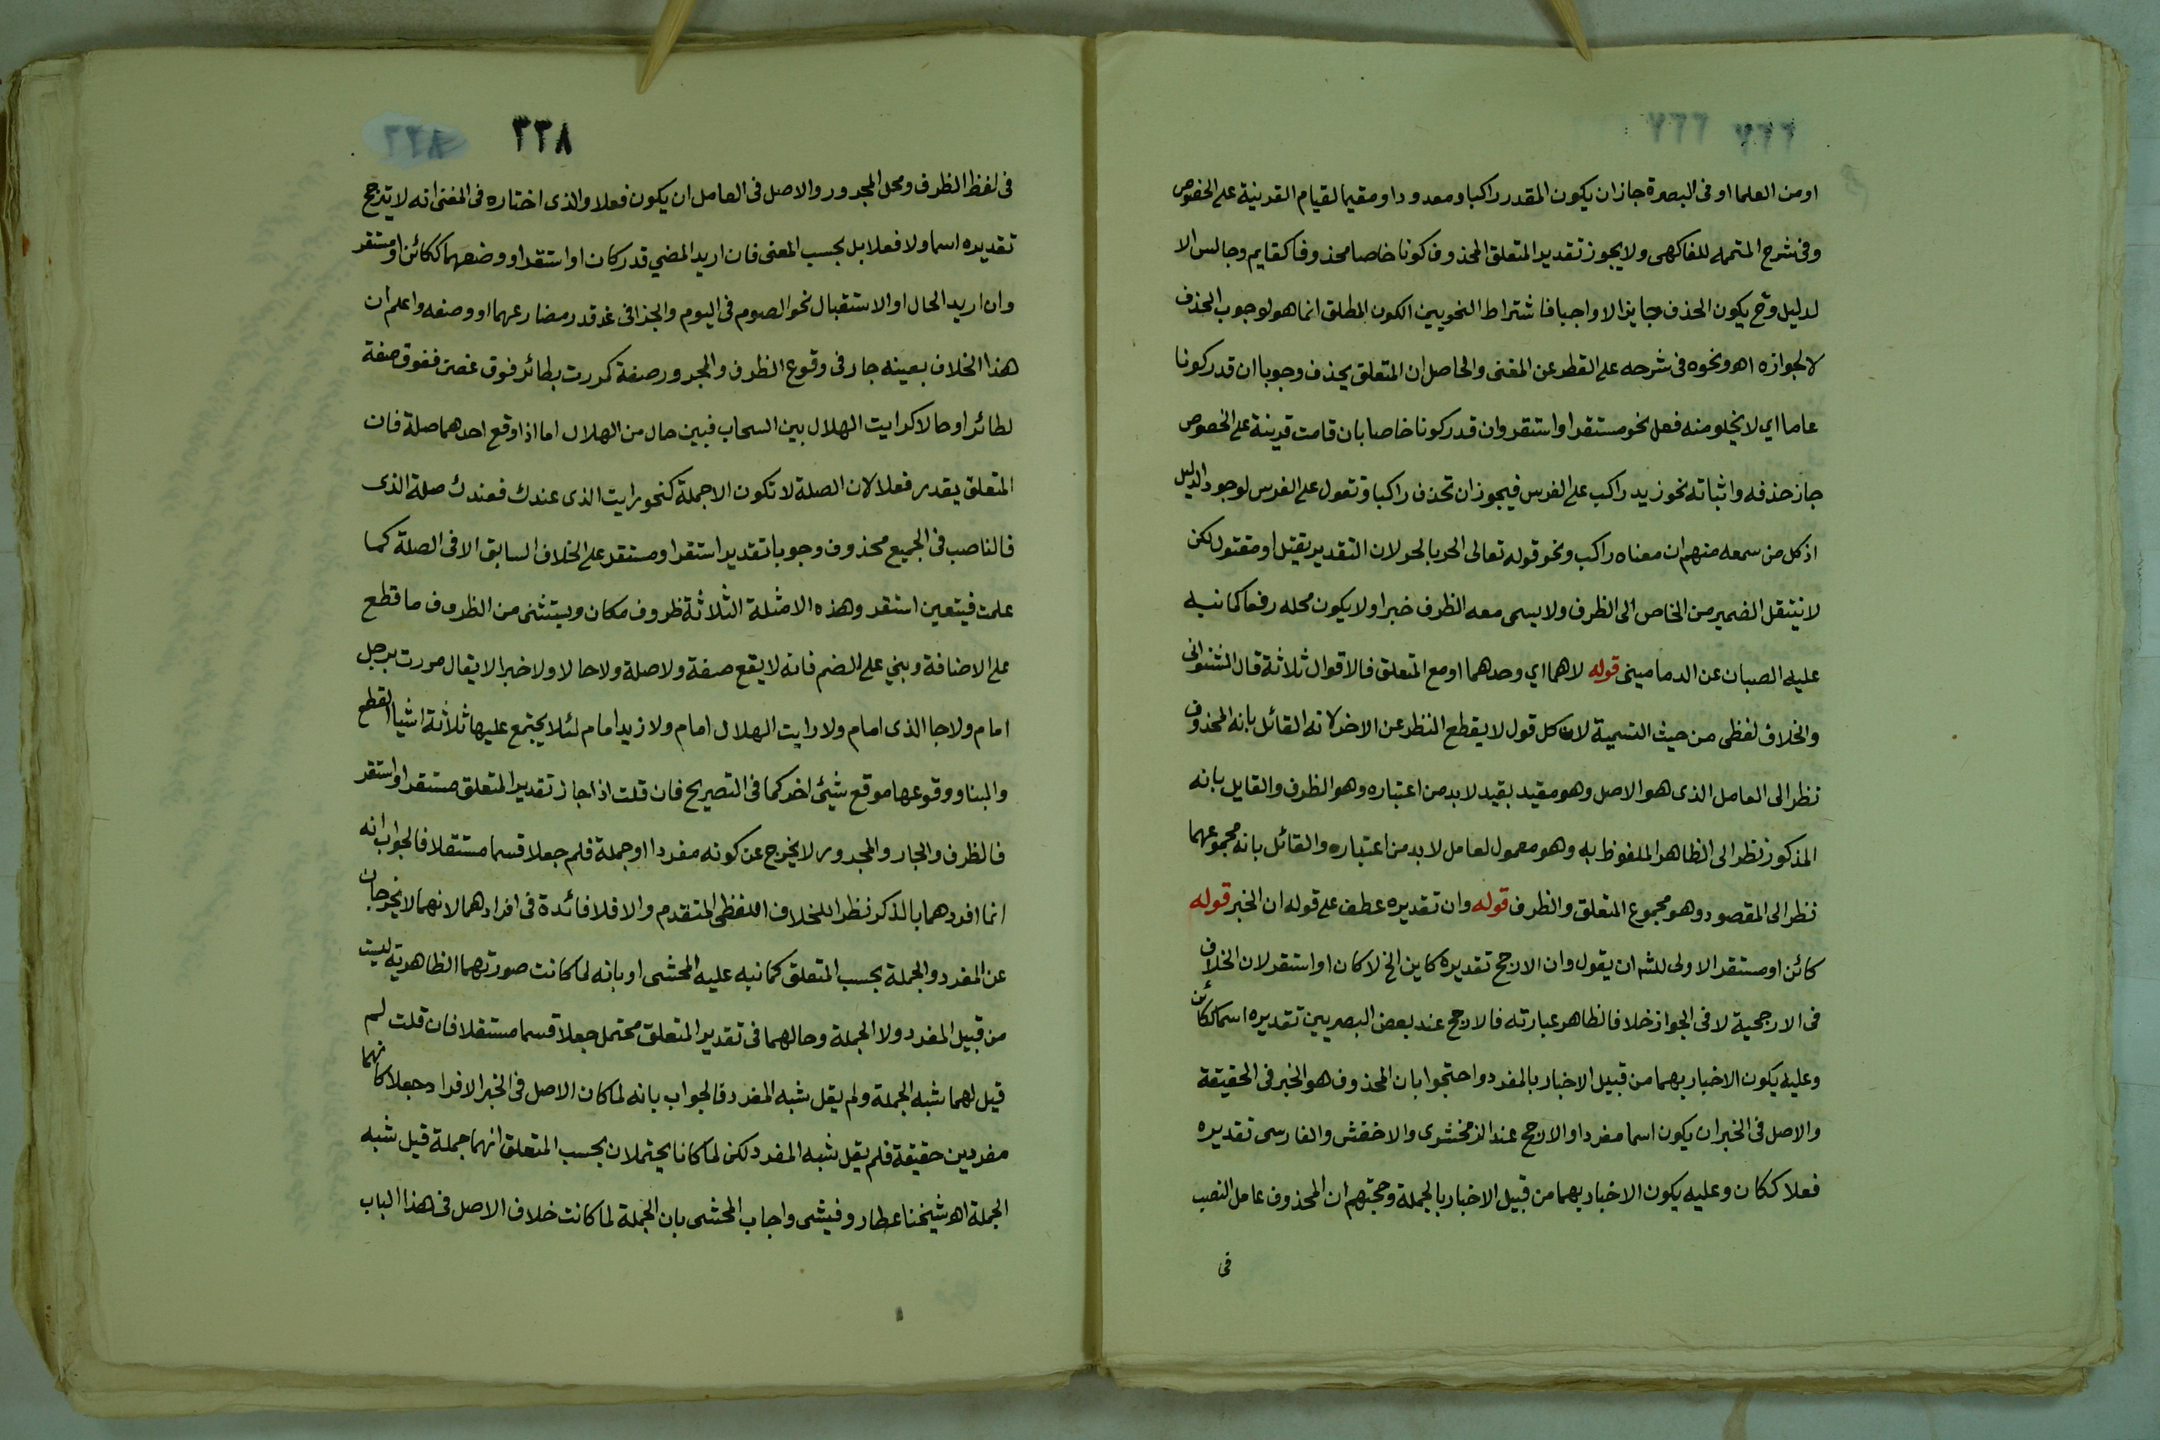 او من العلما او فى البصرة جاز ان يكون المقدر راكبا ومعدودا ومقيما لقيام القرينة على الخصوص
وفى شرح المتممه للفاكهى ولا يجوز تقدير المتعلق المحذوف كونا خاصا محذوفا كقايم وجالس الا
لدليل وح يكون الحذف جايزا لا واجبا فاشتراط النحويين الكون المطلق انما هو لوجوب الحذف
لا لجوازه اهو ونحوه فى شرحه على القطر عن المغنى والحاصل ان المتعلق يحذف وجوبا ان قدر كونا
عاما اي لا يخلو منه فعل نحو مستقر او استقر وان قدر كونا خاصا بان قامت قرينة على الخصوص
جاز حذفه واثباته نحو زيد راكب على الفرس فيجوز ان تحذف راكبا وتقول على الفرس لوجود الدليل
اذ كل من سمعه منهم ان معناه راكب ونحو قوله تعالى الحر بالحر لان التقدير يقتل او مقتول لكن
لا ينتقل الضمير من الخاص الى الظرف ولا يسمى معه الظرف خبرا ولا يكون محله رفعا كما نبه
عليه الصبان عن الدمامينى قوله لاهما اي وحدهما او مع المتعلق فالاقوال ثلاثة قال الشنوانى
والخلاف لفظى من حيث التسمية لان كل قول لا يقطع النظر عن الاخر لانه القائل بانه المحذوف
نظر الى العامل الذى هو الاصل وهو مقيد بقيد لا بد من اعتباره وهو الظرف والقايل بانه
المذكور نظر الى الظاهر الملفوظ به وهو معمول لعامل لا بد من اعتباره والقائل بانه مجموعهما
نظر الى المقصود وهو مجموع المتعلق والظرف قوله وان تقديره عطف على قوله ان الخبر قوله
كائن او مستقر الاولى للشه ان يقول وان الارجح تقديره كاين الخ لا كان او استقر لان الخلاف
فى الارجحية لا فى الجواز خلافا لظاهر عبارته فالارجح عند بعض البصريين تقديره اسما ككائن
وعليه يكون الاخبار بهما من قبيل الاخبار بالمفرد واحتجوا بان المحذوف هو الخبر فى الحقيقة
والاصل فى الخبر ان يكون اسما مفردا والارجح عند الزمخشرى والاخفش والفارسى تقديره
فعلا ككان وعليه يكون الاخبار بهما من قبيل الاخبار بالجملة وحجتهم ان المحذوف عامل النصب
فى
٣٣٨
فى لفظ الظرف ومحل المجرور والاصل فى العامل ان يكون فعلا والذى اختاره فى المغنى انه لا يترجح
تقديره اسما ولا فعلا بل بحسب المعنى فان اريد المضي قدر كان او استقر او وضعهما ككائن او مستقر
وان اريد الحال او الاستقبال نحو الصوم فى اليوم والجزا فى غد قدر مضارعهما او وصفه واعلم ان
هذا الخلاف بعينه جار فى وقوع الظرف والمجرور صفة كمررت بطائر فوق غصن ففوق صفة
لطائر او حالا كرايت الهلال بين السحاب فبين حال من الهلال اما اذا وقع احدهما صلة فان
المتعلق يقدر فعلا لان الصلة لا تكون الا جملة كنحو رايت الذى عندك فعندك صلة الذى
فالناصب فى الجميع محذوف وجوبا تقديره استقر او مستقر على الخلاف السابق الا فى الصلة كما
علمت فيتعين استقر وهذه الامثلة الثلاثة ظروف مكان ويستثنى من الظروف ما قطع
على الاضافة وبني على الضم فانه لا يقع صفة ولا صلة ولا حالا ولا خبرا لا يقال مررت برجل
امام ولا جا الذى امام ولا رايت الهلال امام ولا زيد امام لئلا يجتمع عليها ثلاثة اشيا القطع
والبنا ووقوعها موقع شيئ اخر كما فى التصريح فان قلت اذا جاز تقدير المتعلق مستقر او استقر
فالظرف والجار والمجرور لا يخرج عن كونه مفردا او جملة فلم جعلا قسما مستقلا فالجواب انه
انما افردهما بالذكر نظرا للخلاف اللفظى المتقدم والا فلا فائدة فى افرادهما لانهما لا يخرجان
عن المفرد والجملة بحسب المتعلق كما نبه عليه المحشى او بانه لما كانت صورتهما الظاهرية ليست
من قبيل المفرد ولا الجملة وحالهما فى تقدير المتعلق محتمل جعلا قسما مستقلا فان قلت لم
قيل لهما شبه الجملة ولم يقل شبه المفرد فالجواب بانه لما كان الاصل فى الخبر الافراد جعلا كانهما
مفردين حقيقة فلم يقل شبه المفرد لكن لما كانا يحتملان بحسب المتعلق انهما جملة قيل شبه
الجملة اهو شيخنا عطار وفيشى واجاب المحشى بان الجملة لما كانت خلاف الاصل فى هذا الباب